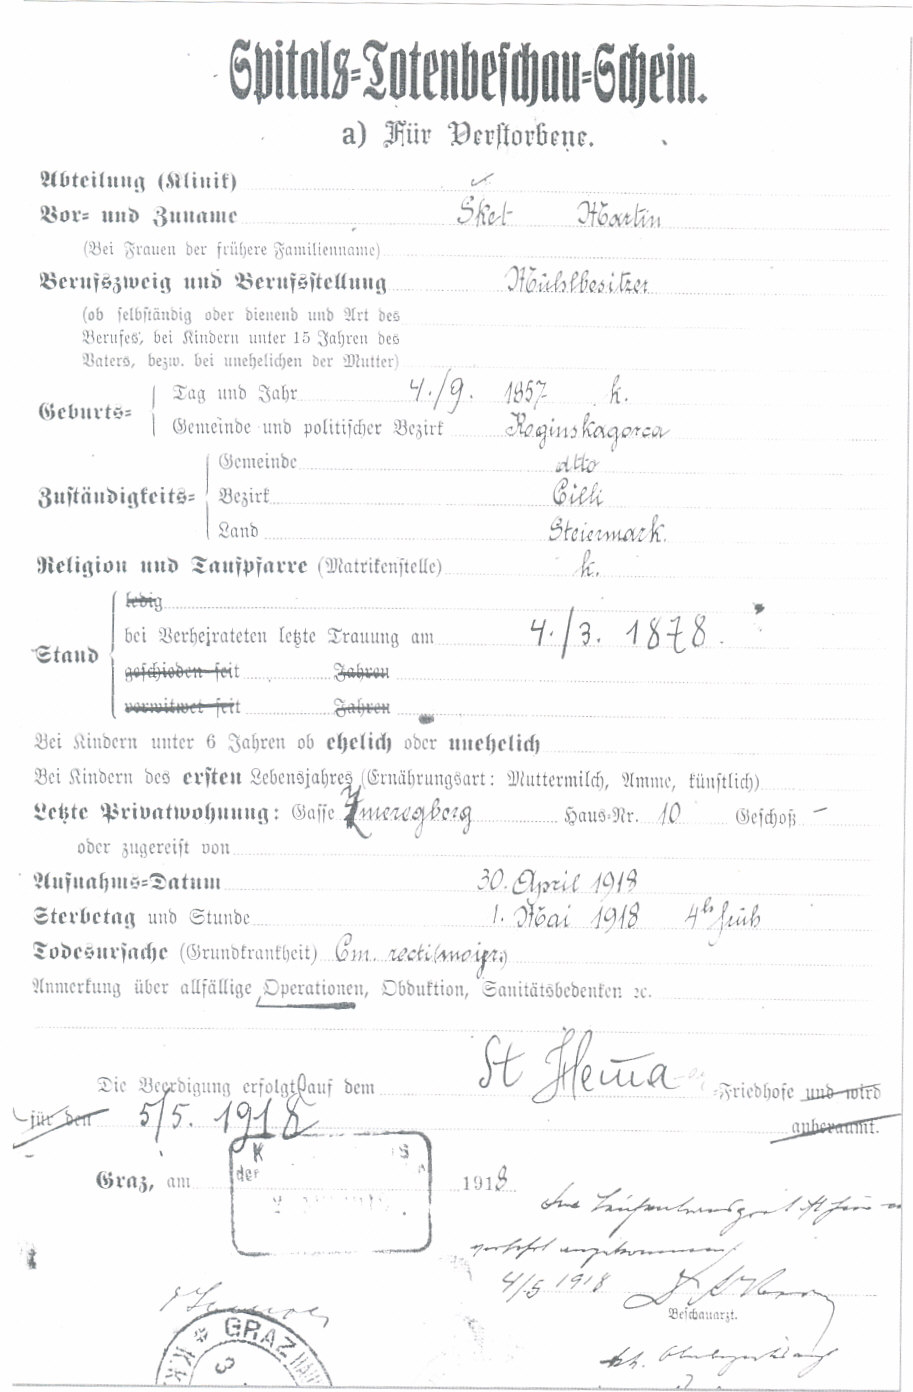 Spitals-Totenbeschau-Schein.
a) Für Verstorbene.
Abteilung (Klinik)
Vor- und Zuname Šket Martin
(Bei Frauen der frühere Familienname)
Berufszweig und Berufsstellung Mühlbesitzer
(ob selbständig oder dienend und Art des
Berufes, bei Kindern unter 15 Jahren des
Vaters, bezw. bei unehelichen der Mutter)
Geburts-
Tag und Jahr 4./9. 1857 k.
Gemeinde und politischer Bezirk Roginskagorca
Zuständigkeits-
Gemeinde dtto
Bezirk Cilli
Land Steiermark.
Religion und Taufpfarre (Matrikenstelle) k.
Stand
ledig
bei Verheirateten letzte Trauung am 4./3. 1878.
geschieden seit Jahren
verwitwet seit Jahren
Bei Kindern unter 6 Jahren ob ehelich oder unehelich
Bei Kindern des ersten Lebensjahres (Ernährungsart: Muttermilch, Amme, künstlich)
Letzte Privatwohnung: Gasse Zmeregberg Haus-Nr. 10 Geschoß –
oder zugereist von
Aufnahms-Datum 30. April 1918
Sterbetag und Stunde 1. Mai 1918 4h früh
Todesursache (Grundkrankheit) Cm. recti
Anmerkung über allfällige Operationen, Obduktion, Sanitätsbedenken ꝛc.
Die Beerdigung erfolgt auf dem St Hema -Friedhofe und wird
für den 5/5. 1918 anberaumt.
K S
der
Graz, am 1918
4/5 1918
Beschauarzt.
GRAZ
K.K.
3